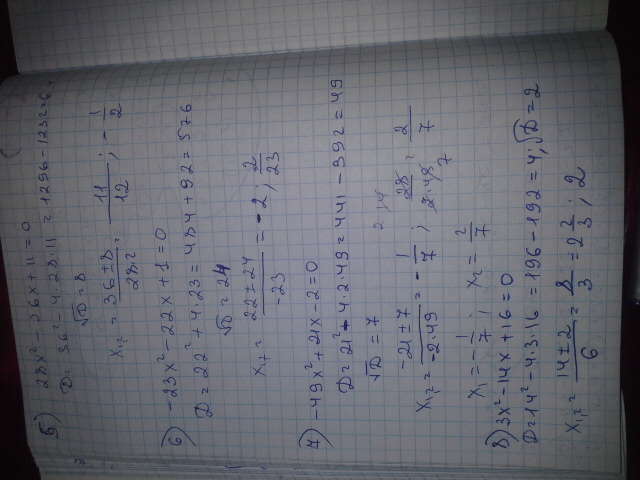 5) 28x² - 36x + 11 = 0
D = 36² - 4·28·11 = 1296 - 1232 = 6
√D = 8
x₁,₂ = 36±8/28² 11/12 ; -1/2
6) -23x² - 22x + 1 = 0
D = 22² + 4·23 = 484 + 92 = 576
√D = 24
x₁ = 22±24/-23 = -2 ; 2/23
7) -49x² + 21x - 2 = 0
D = 21² - 4·2·49 = 441 - 392 = 49
√D = 7
x₁,₂ = -21±7/-2·49 = -1/7 ; 28/2·49 = 2/7
x₁ = -1/7 ; x₂ = 2/7
8) 3x² - 14x + 16 = 0
D = 14² - 4·3·16 = 196 - 192 = 4, √D = 2
x₁,₂ = 14±2/6 = 8/3 = 2 2/3 ; 2